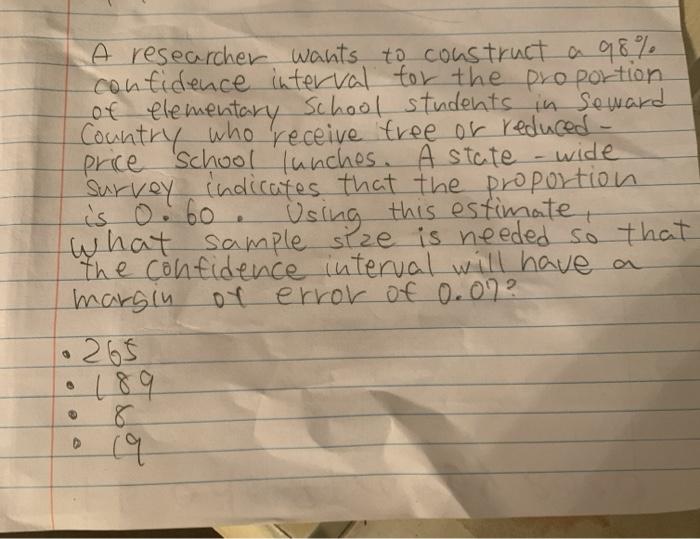 A researcher wants to construct a 98%
confidence interval for the proportion
of elementary School students in Seward
Country who receive free or reduced-
price School lunches. A state-wide
survey indicates that the proportion
is 0.60. Using this estimate,
what sample size is needed so that
the confidence interval will have a
margin of error of 0.07?
• 265
• 189
• 8
• 19